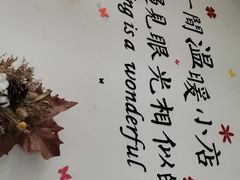 一間溫暖小店
遇見眼光相似的
ng is a wonderful